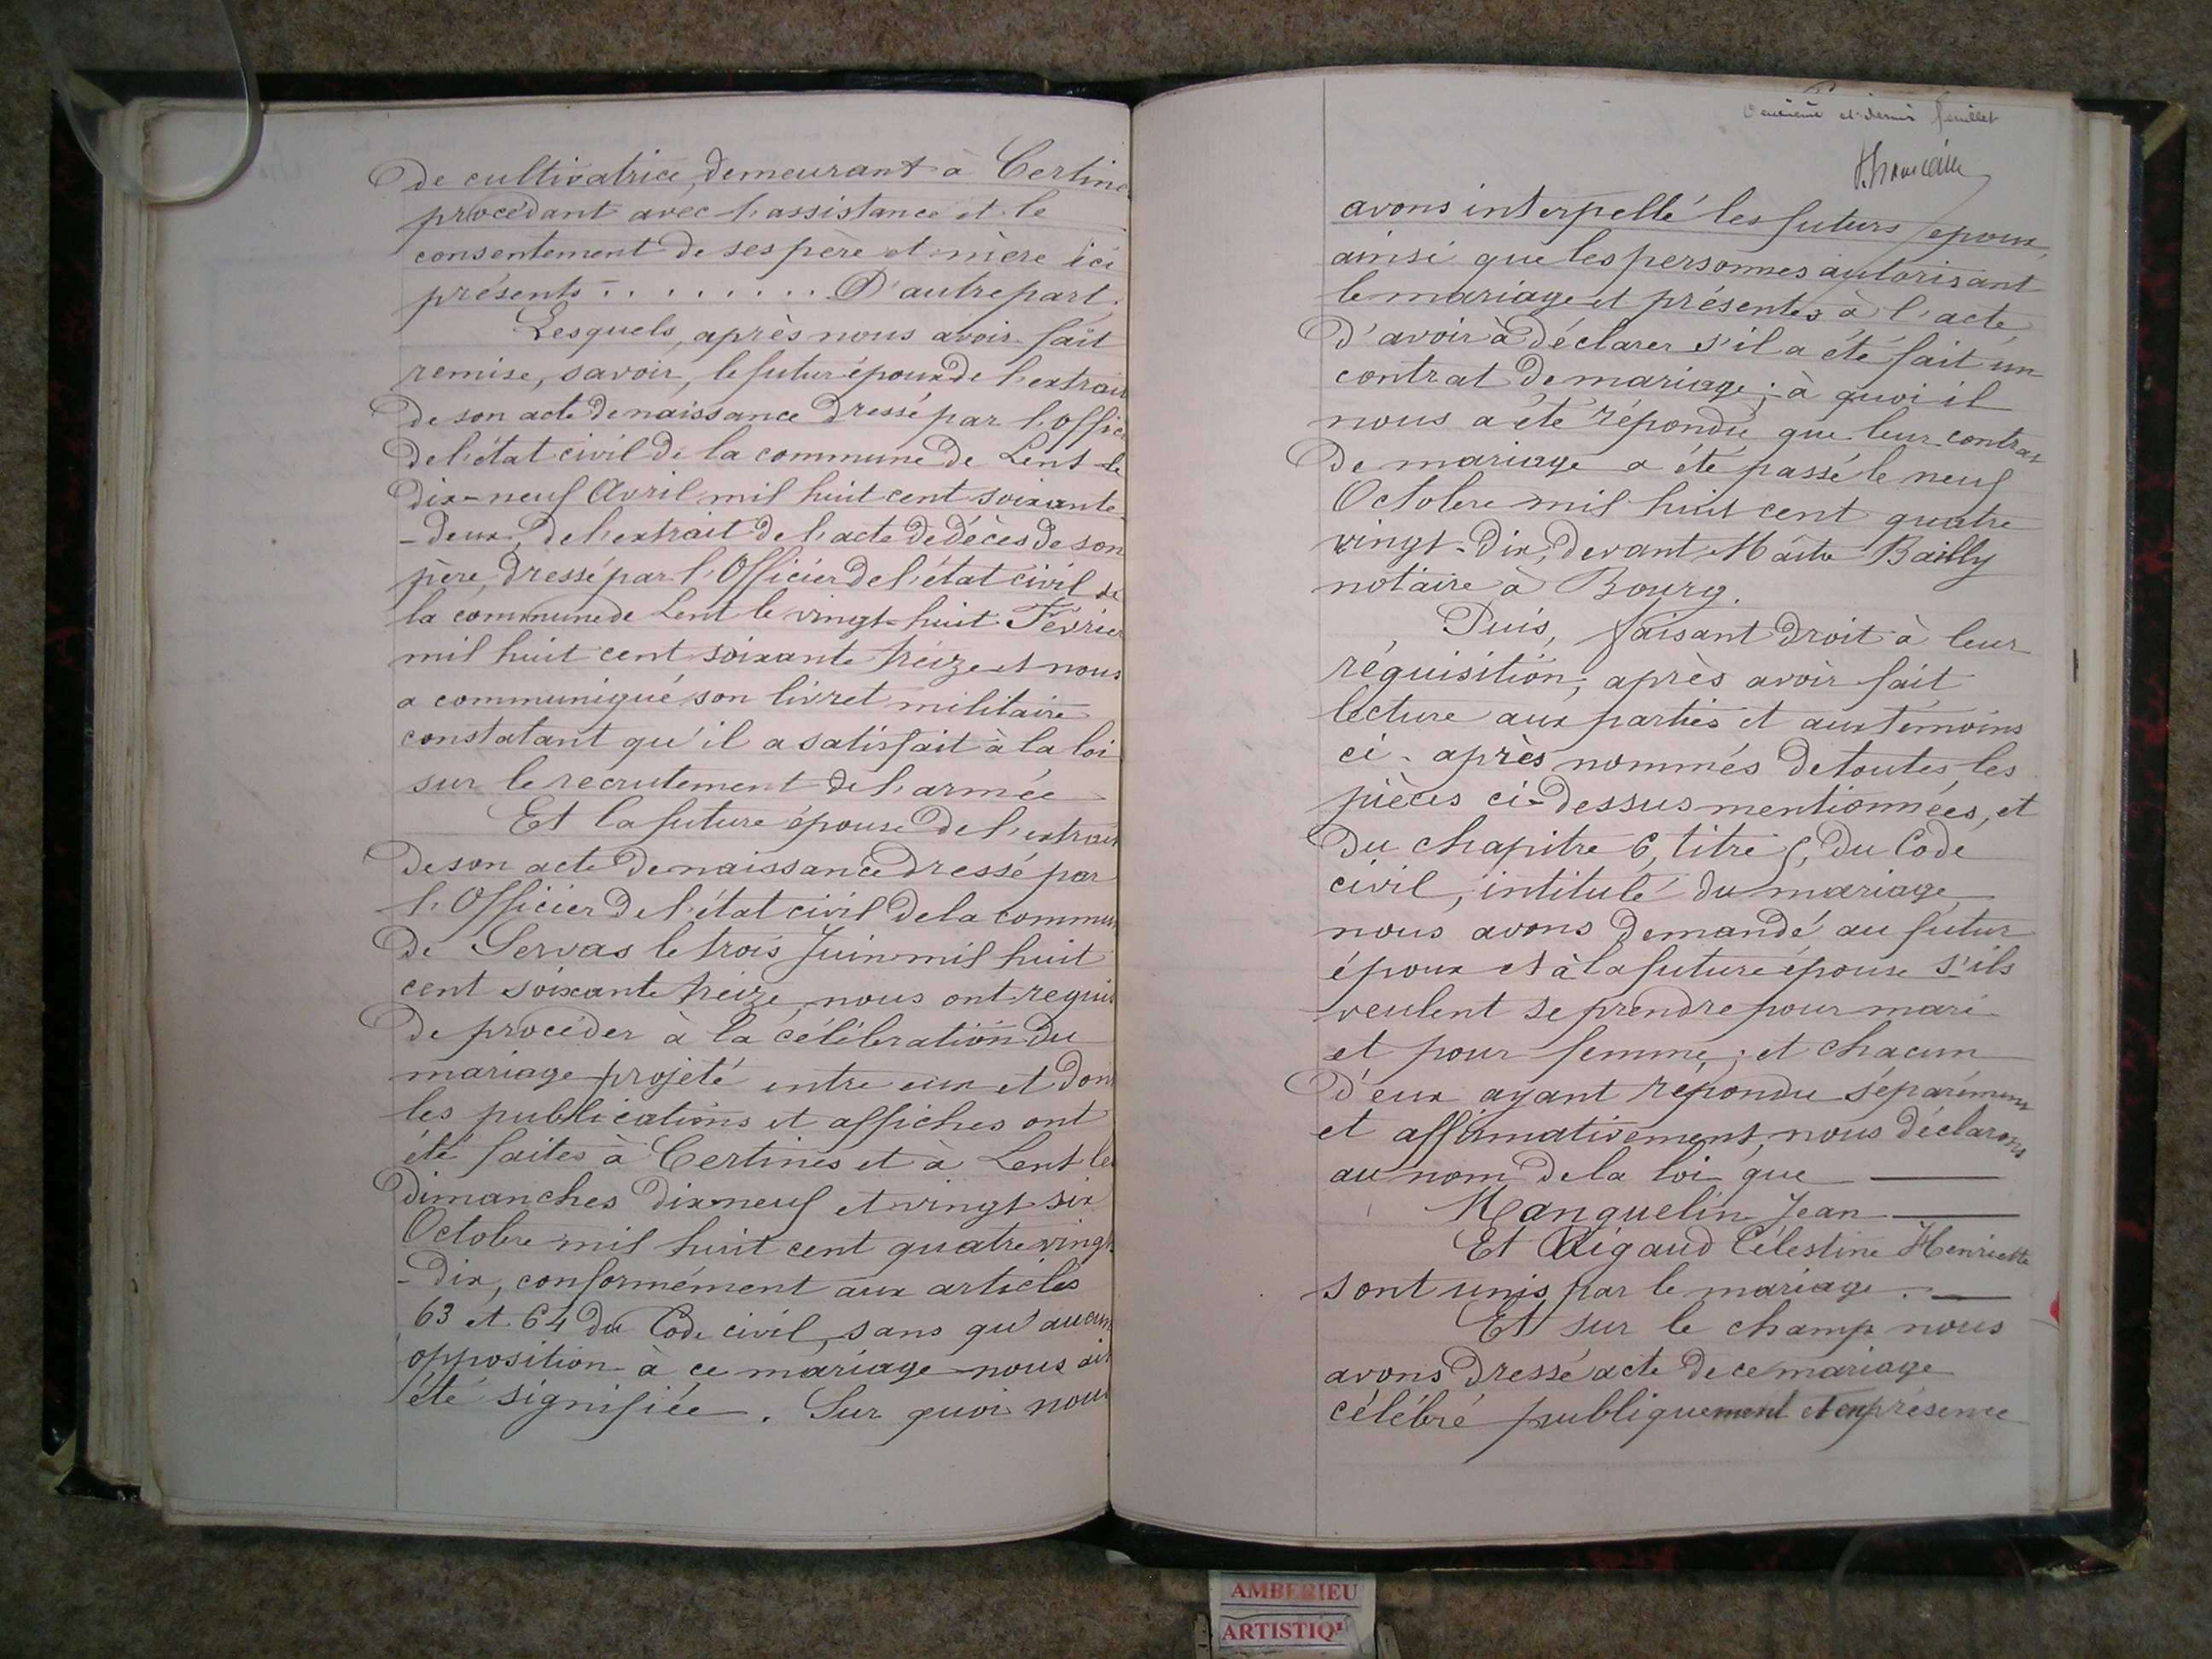 de cultivatrice, demeurant à Certine
procédant avec l'assistance et le
consentement de ses père et mère ici
présents . . . . . . . . . D'autre part.
Lesquels, après nous avoir fait
remise, savoir, le futur époux de l'extrait
de son acte de naissance dressé par l'offic
de l'état civil de la commune de Lent le
dix-neuf Avril mil huit cent soixante
-deux, de l'extrait de l'acte de décès de son
père, dressé par l'Officier de l'état civil de
la commune de Lent le vingt-huit Février
mil huit cent soixante treize et nous
a communiqué son livret militaire
constatant qu'il a satisfait à la loi
sur le recrutement de l'armée
Et la future épouse de l'extrait
de son acte de naissance dressé par
l'Officier de l'état civil de la commun
de Servas le trois Juin mil huit
cent soixante treize, nous ont requis
de procéder à la célébration du
mariage projeté entre eux et don
les publications et affiches ont
été faites à Certines et à Lent le
dimanches dix neuf et vingt six
Octobre mil huit cent quatre vingt
-dix, conformément aux articles
63 et 64 du Code civil, sans qu'aucun
opposition à ce mariage nous ait
été signifiée. Sur quoi nous
et dernier feuillet
avons interpellé les futurs époux,
ainsi que les personnes autorisant
le mariage et présentes à l'acte
d'avoir à déclarer s'il a été fait un
contrat de mariage; à quoi il
nous a été répondu que leur contrat
de mariage a été passé le neuf
Octobre mil huit cent quatre
vingt-dix, devant Maître Bailly
notaire à Bourg.
Puis, faisant droit à leur
réquisition; après avoir fait
lecture aux parties et aux témoins
ci-après nommés de toutes les
pièces ci-dessus mentionnées, et
du chapitre 6, titre 5, du Code
civil, intitulé du mariage
nous avons demandé au futur
époux et à la future épouse s'ils
veulent se prendre pour mari
et pour femme; et chacun
d'eux ayant répondu séparément
et affirmativement, nous déclarons
au nom de la loi que
Manguelin Jean
Et Rigaud Célestine Henriette
sont unis par le mariage.
Et sur le champ nous
avons dressé acte de ce mariage
célébré publiquement et en présence
AMBERIEU
ARTISTIQ